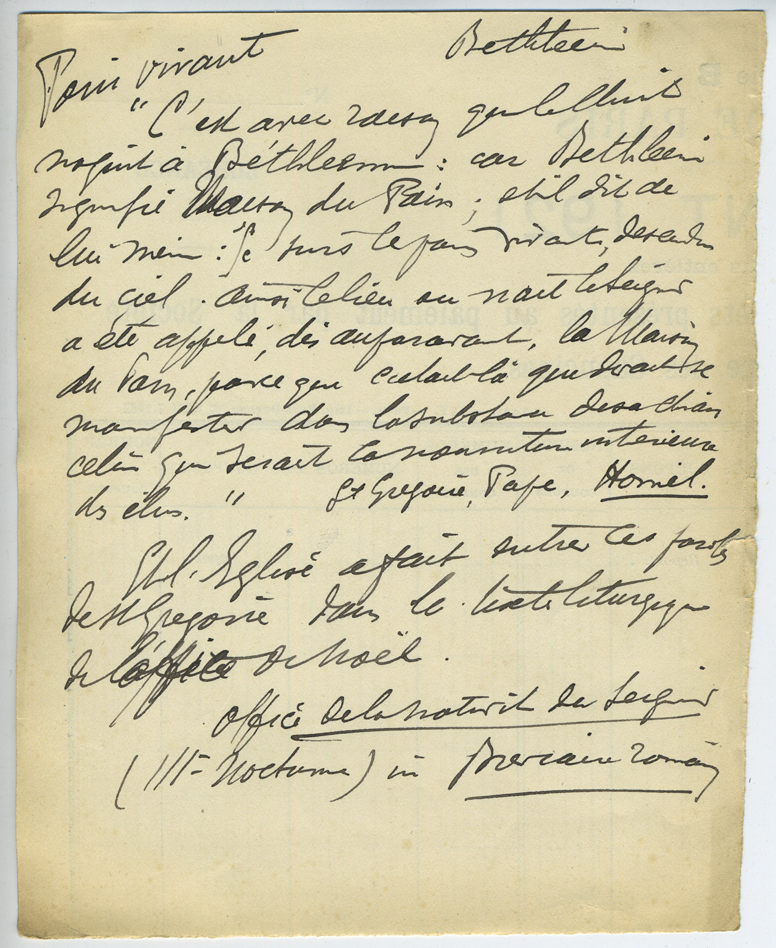 Pain vivant Bethléem
"C'est avec raison que le Christ
naquit à Béthléem : car Bethléem
signifie Maison du Pain ; et il dit de
lui même : Je suis le pain vivant, descendu
du ciel. Ainsi le lieu ou naît le Seigneur
a été appelé, dès auparavant, la Maison
du Pain, parce que c'était là que devait se
manifester dans la substance de sa chair
celui qui serait la nourriture intérieure
des élus." St Grégoire, Pape, Homél.
Et l'Eglise a fait entrer ces paroles
de St Grégoire dans le texte liturgique
de l'office de Noël.
Office de la Nativité du Seigneur
(IIIe Nocturne) in Breviaire romain